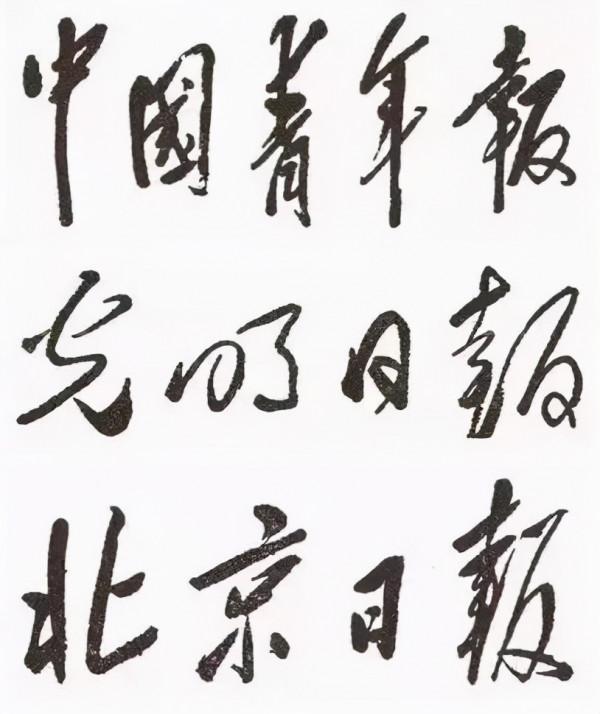 中國青年報
光明日報
北京日報